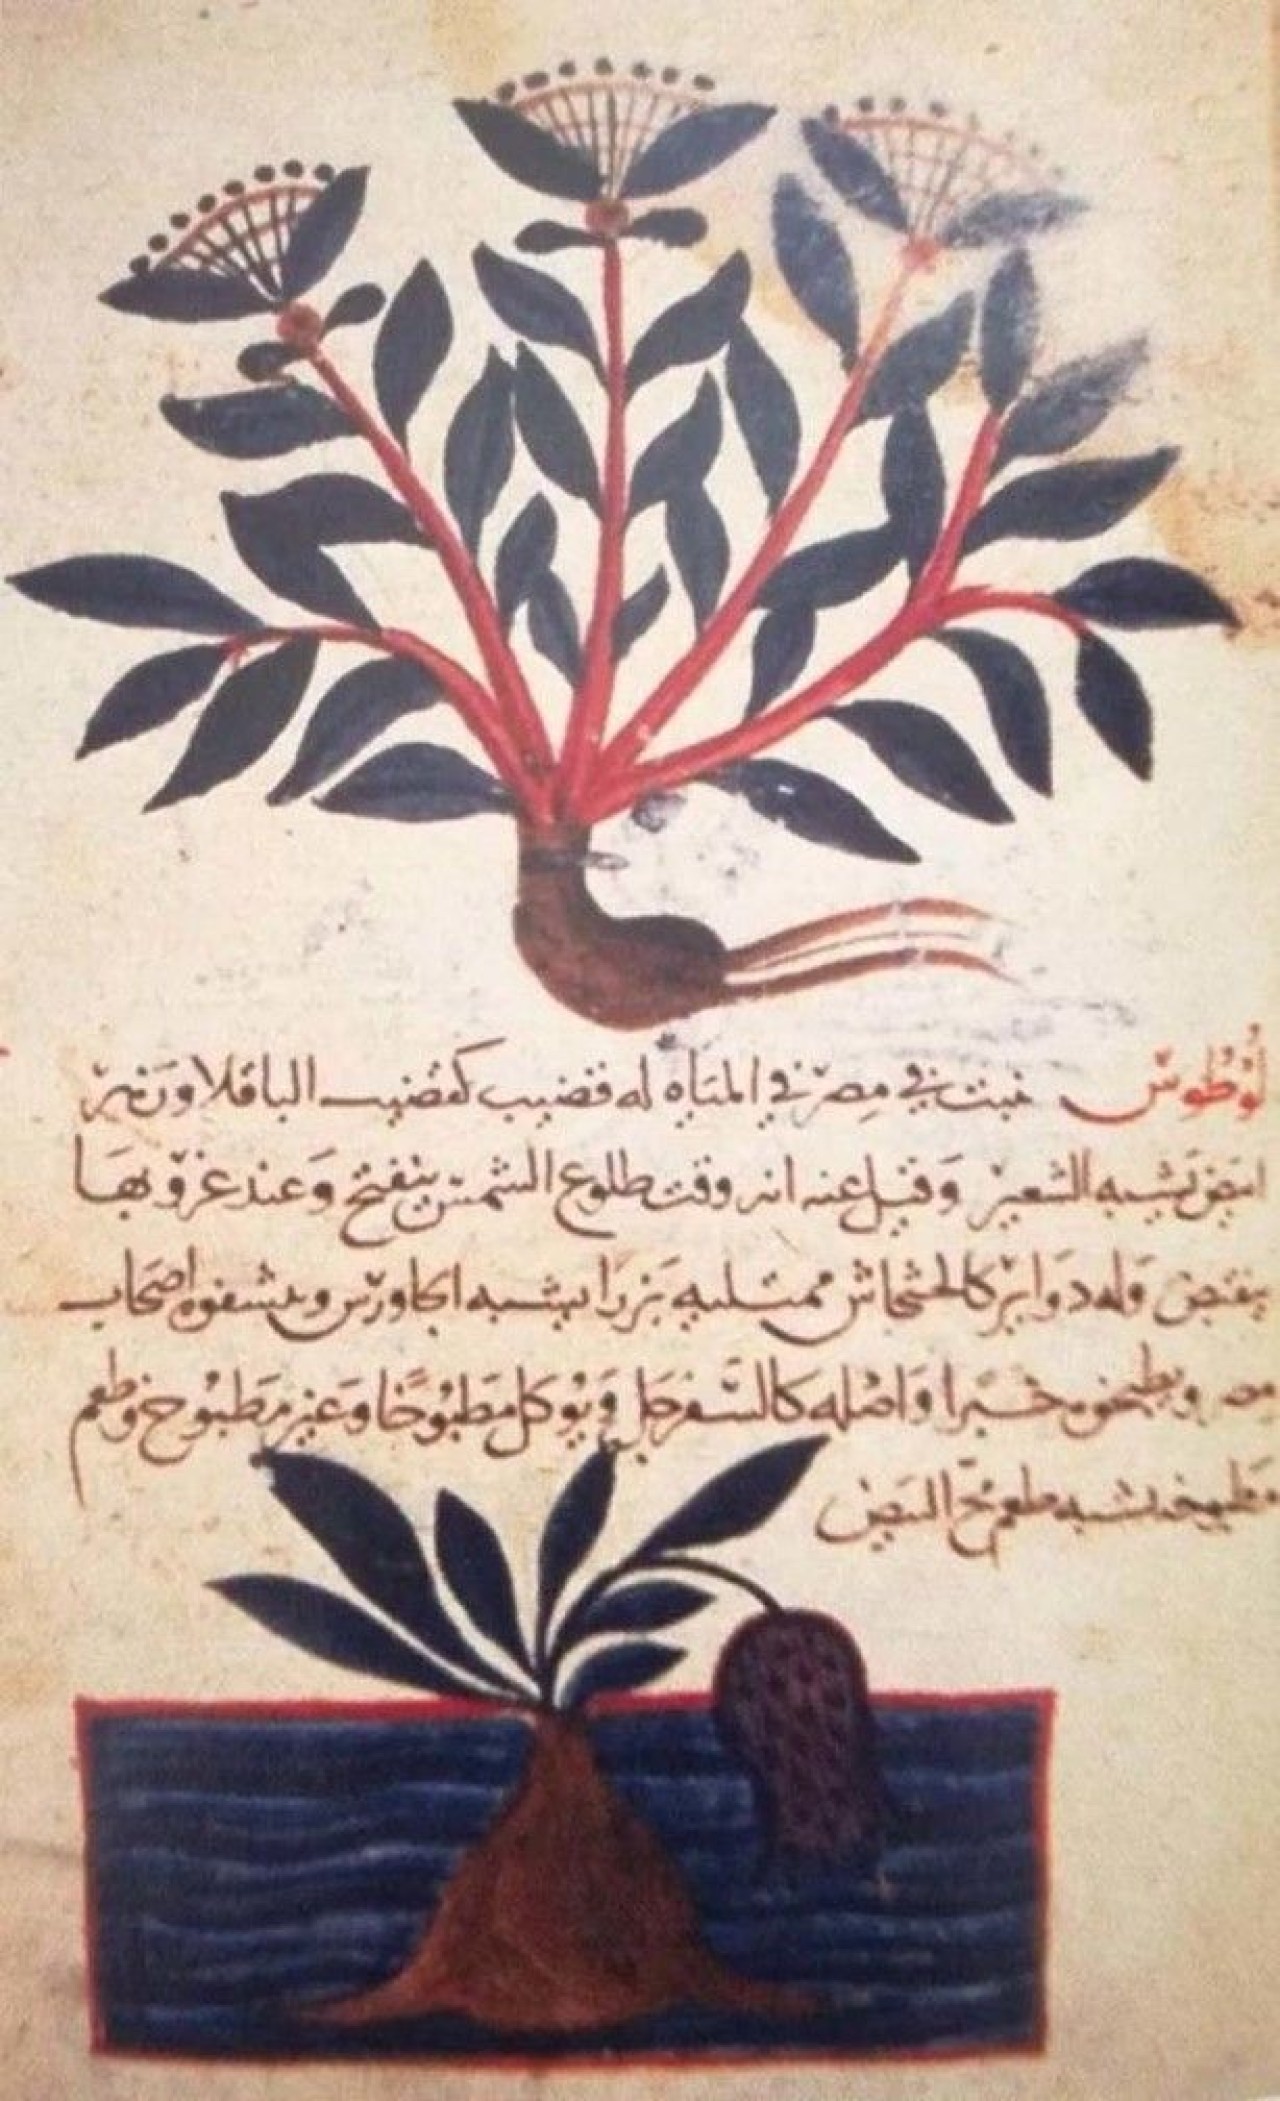 لُوطُوس ننبت في مِصرَ في المنَاه له قضيب كقضيب الباقلا وزَهر
ابيَض يَشبه الشعير وَقيل عنه انه وقت طلوع الشمس ينفتح وَعند غروبهَا
ينقبض وَله دوَاير كالخشخاش ممتليه بَزرًا يشبه الجاورس وينشفوه اصحَاب
مصر ويطبخوه خبزا وَاصله كالسّفرجَل وَيُوكل مَطبُوخًا وَغير مَطبُوخ وطعم
مَطبوخه يشبه طعم مُحّ البَيض